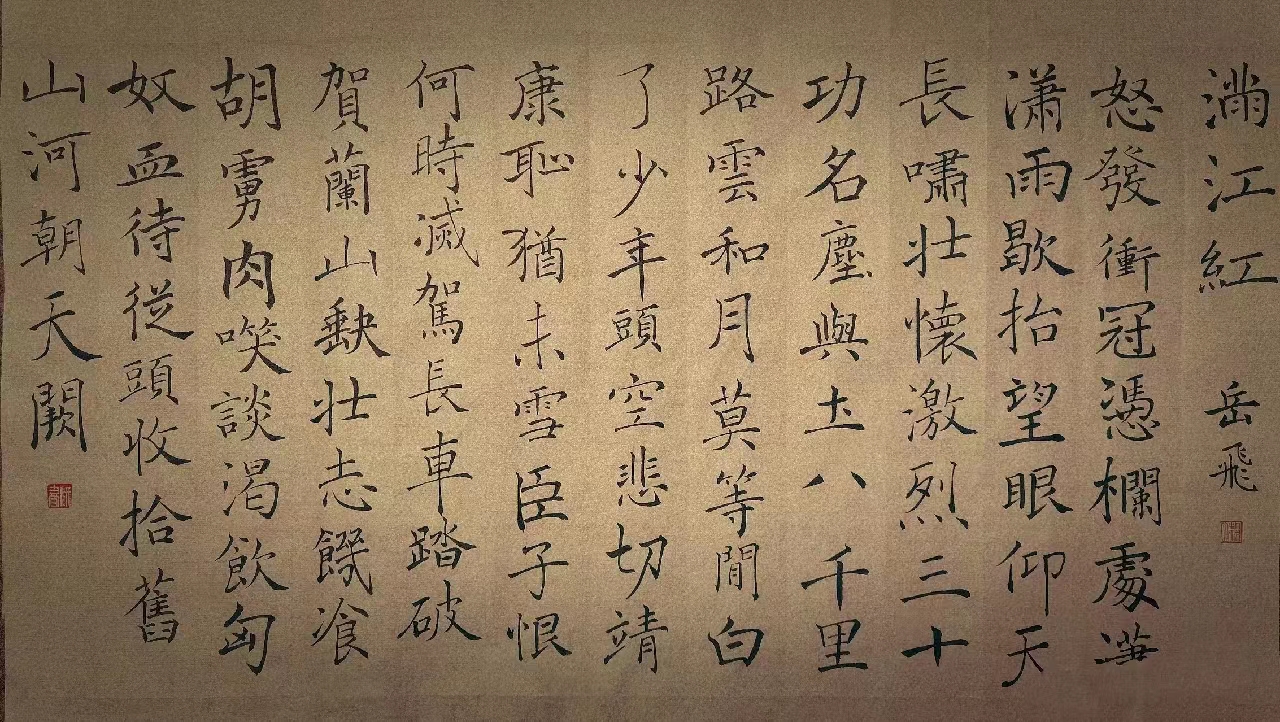 滿江紅 岳飛
怒發衝冠憑欄處瀟
瀟雨歇抬望眼仰天
長嘯壯懷激烈三十
功名塵與圡八千里
路雲和月莫等閒白
了少年頭空悲切靖
康恥猶未雪臣子恨
何時滅駕長車踏破
賀蘭山缺壯志饑湌
胡虜肉㗛談渴飲匈
奴血待從頭收拾舊
山河朝天闕